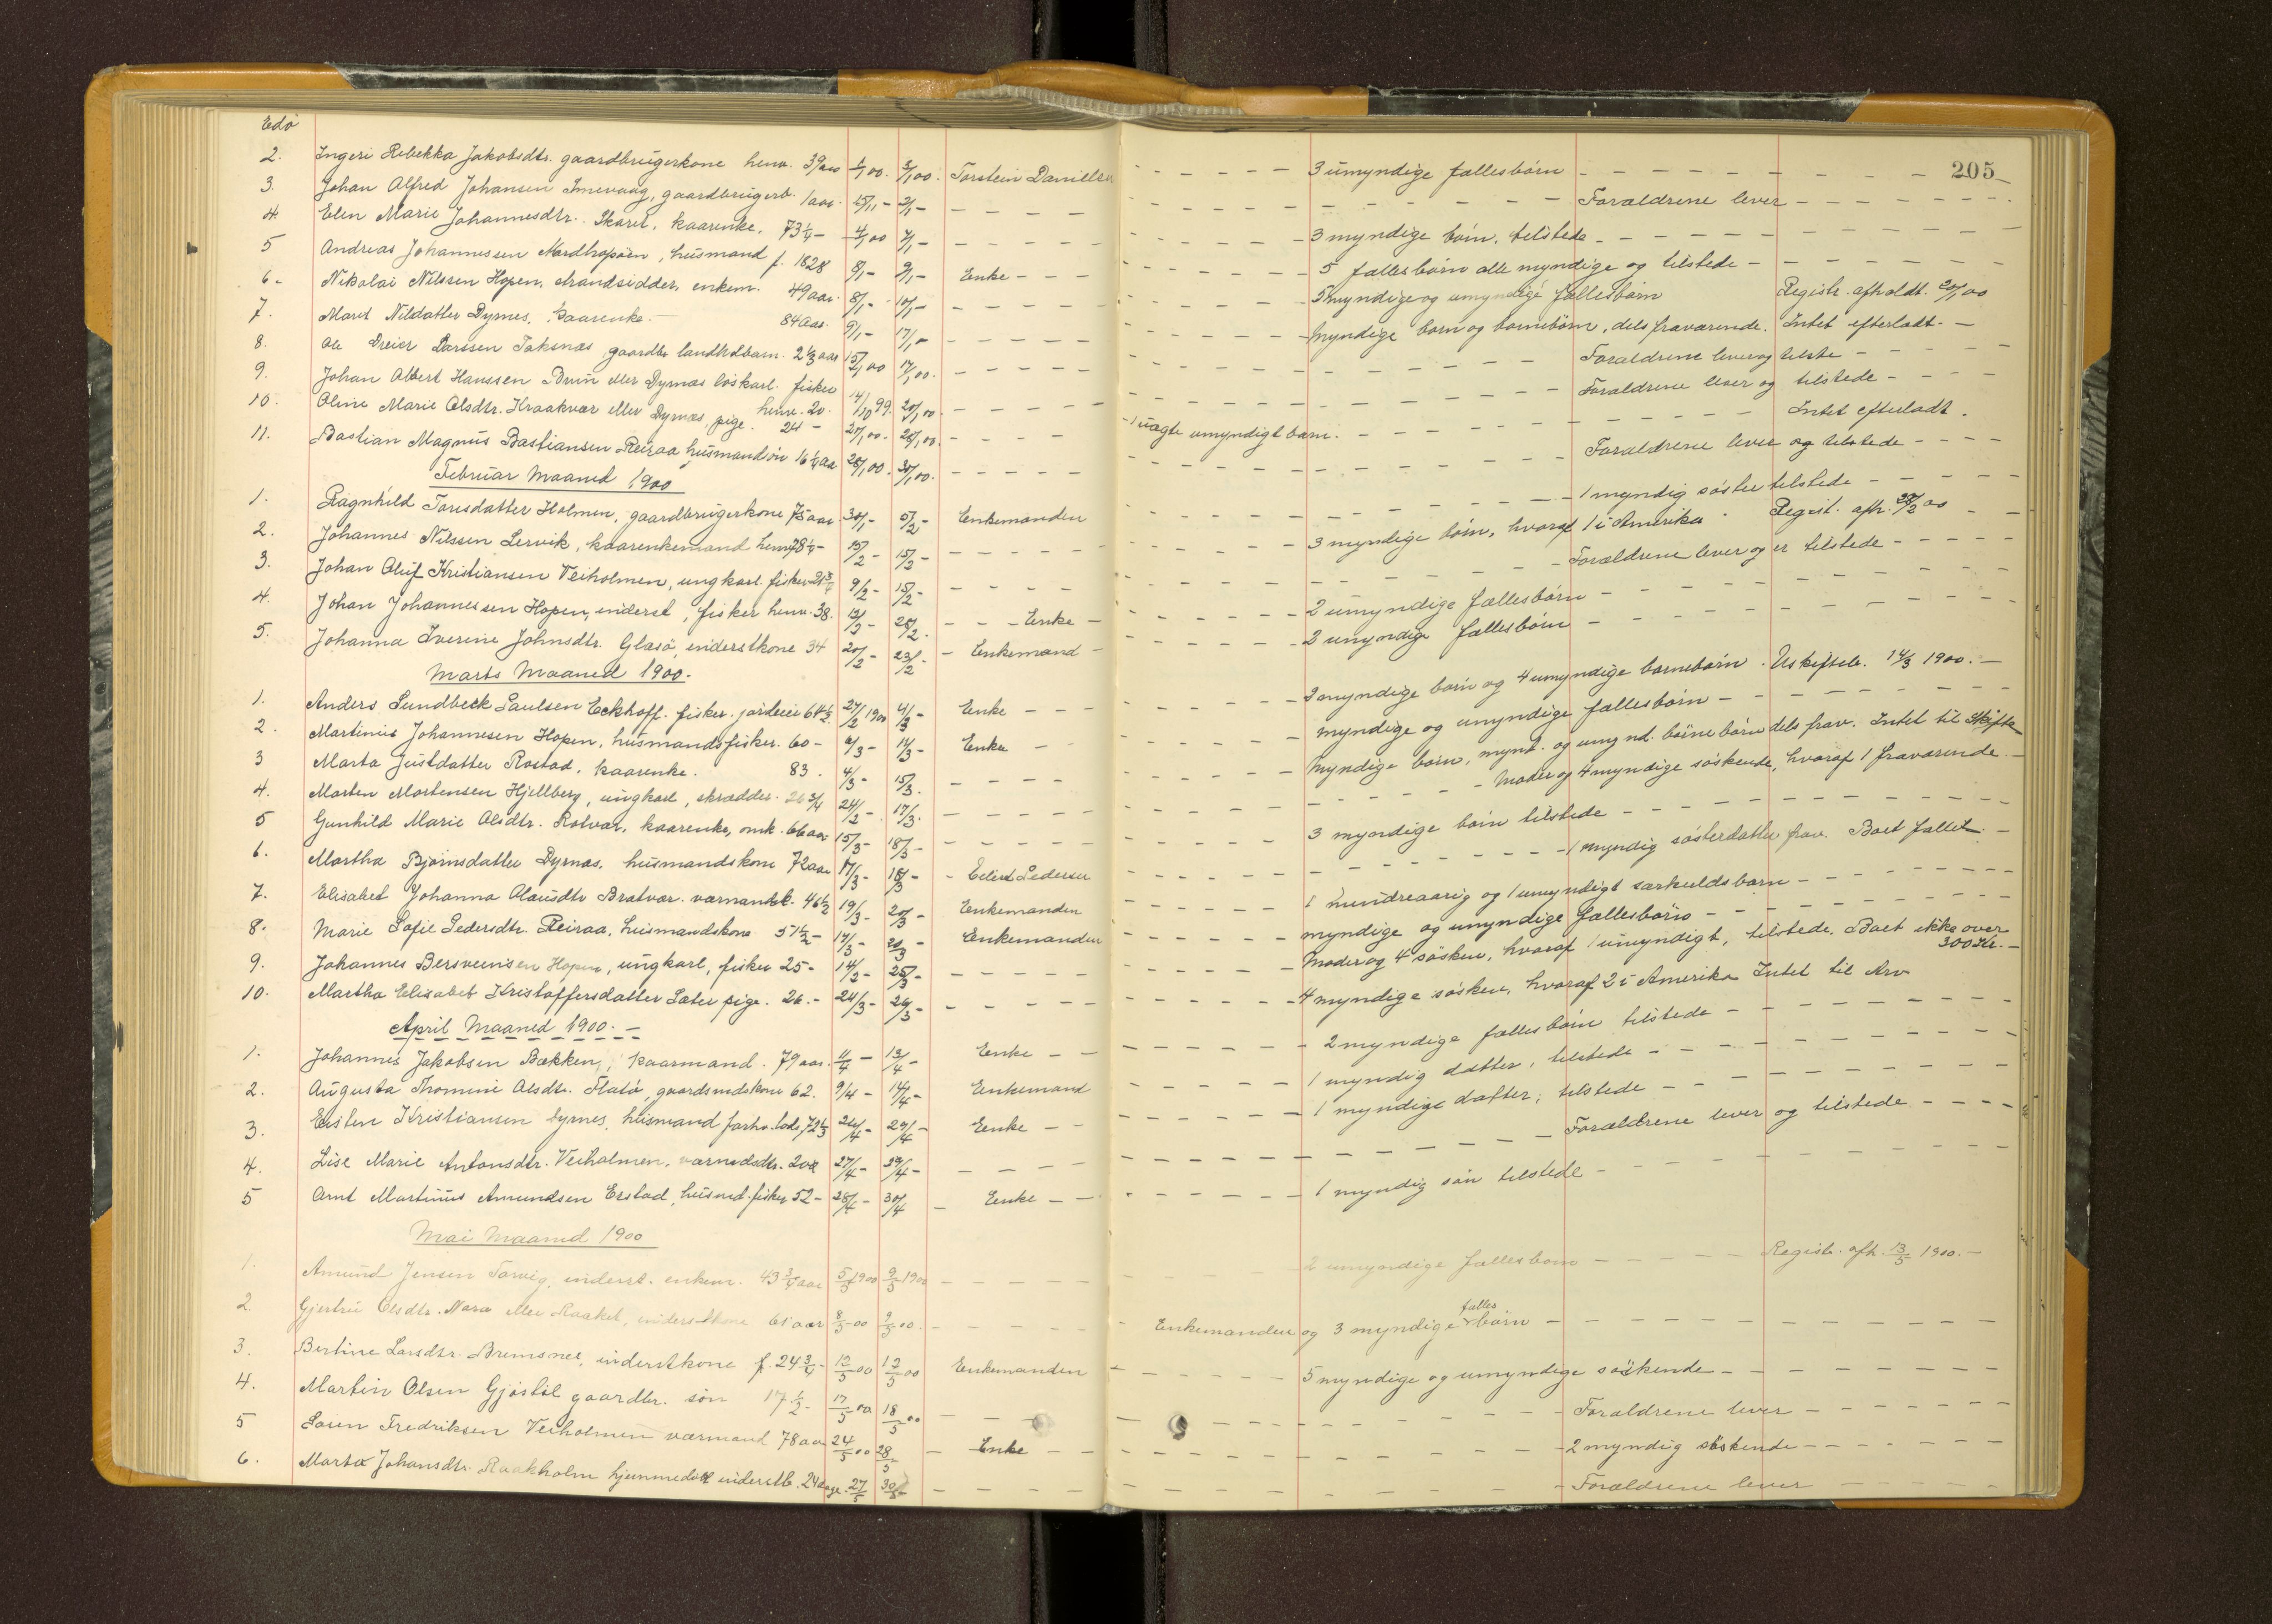 Edö
205
2. Ingeri Rebekka Jakobsdtr. gaardbrugerkone henv. 39 aar 1/1 00. 3/1 00. Torstein Danielsen — 3 umyndige fællesbörn
3. Johan Alfred Johansen Imevaag, gaardbrugerb. 1 aar. — Forældrene lever
4. Elen Marie Johannesdtr. Skaret, kaarenke. 73 1/4 — 4/1 00 7/1 — 3 myndige börn, tilstede
5 Andreas Johannessen Nordhopöen, husmand f. 1828 8/1 — 9/1 — Enke — 5 fællesbörn alle myndige og tilstede —
6. Nikolai Nilssen Hopen, strandsidder, enkem. 49 aar. 8/1 — 10/1 — 5 myndige og umyndige fællesbörn Registr. afholdt. 20/1 00
7. Marit Nilsdatter Dyrnes, kaarenke — 84 aar. 9/1 — 17/1 — Myndige börn og börnebörn, dels fraværende. Intet efterladt. —
8. Ole Dreier Larssen Taknæs, gaardbr. 2 1/3 aar 15/1 00 17/1 00. — Forældrene lever og tilste —
9. Johan Albert Hanssen Bruin eller Dyrnæs löskarl. fisker henv. 20. 14/10 99. 20/1 00. — Forældrene lever og tilstede —
10. Oline Marie Olsdtr. Kraakvær eller Dyrnæs pige. 24 — 20/1 00. 25/1 00. — 1 uægte umyndigt barn. — Intet efterladt.
11. Bastian Magnus Bastiansen Reiraa husmandsön 16 1/4 aar 28/1 00. 30/1 00. — Forældrene lever og tilstede —
Februar Maaned 1900
1. Ragnhild Toresdatter Holmen, gaardbrugerkone 75 aar 30/1 — 5/2 — Enkemanden — 1 myndig söster tilstede —
2. Johannes Nilssen Lervik, kaarenkemand henv. 78 1/4 — 15/2 — — 3 myndige börn, hvoraf 1 i Amerika — Regist. afh. 28/2 00
3. Johan Oluf Kristiansen Veiholmen, ungkarl. fisker 21 3/4 9/2 — 15/2 — Forældrene lever og er tilstede —
4. Johan Johannessen Hopen, inderst, fisker henv. 38. — Enke — 2 umyndige fællesbörn —
5. Johanna Iverine Johnsdtr. Glasö, inderstkone 34 20/2 — 23/2 — Enkemand — 2 umyndige fællesbörn —
Marts Maaned 1900.
1. Anders Lundbeck Paulsen Eckhoff. fisker. jordeier 61 1/2. 27/2 1900 4/3 — Enke — 2 myndige börn og 4 umyndige börnebörn. Uskifteb. 14/3 1900. —
2. Martinus Johannesen Hopen, husmandsfisker. 60 — 6/3 — 14/3 — Enke — myndige og umyndige fællesbörn —
3 Marta Justdatter Rostad, kaarenke. 83. 4/3 — 15/3. — Myndige börn, mynd. og umynd. börnebörn dels frav. Intet til Skifte
4. Morten Mortensen Hjellberg, ungkarl, skrædder. 26 3/4 24/2 — 17/3. — Moder og 4 myndige söskende, hvoraf 1 fraværende. —
5 Gunhild Marie Olsdtr. Rotvær, kaarenke, omk. 66 aar 15/3 — 18/3 — 3 myndige börn tilstede —
6. Martha Björnsdatter Dyrnæs, husmandskone 72 aar 17/3 — 18/3 — Edvert Pedersen — 1 myndig sösterdatter frav. Boet fallit —
7. Elisabet Johanna Olausdtr Bratvær. værmandsk. 46 1/2 19/3 — 20/3 — Enkemanden — 1 hundreaarig og 1 umyndigt særkuldsbarn —
8. Marie Sofie Pedersdtr. Reiraa, husmandskone 51 1/2 — 17/3 — 20/3 — Enkemanden — myndige og umyndige fællesbörn —
9. Johannes Bersveensen Hopen, ungkarl, fisker 25 — 14/3 — 25/3 — Moder og 4 sösken, hvoraf 1 umyndigt, tilstede. Boet ikke over 300 Kr. —
10. Martha Elisabet Kristoffersdatter Sæter pige. 26. — 24/3 — 26/3 — 4 myndige sösken, hvoraf 2 i Amerika Intet til Arv
April Maaned 1900. —
1. Johannes Jakobsen Bækken, kaarmand. 79 aar. 11/4 — 13/4 — Enke — 2 myndige fællesbörn tilstede —
2. Augusta Thomine Olsdtr. Flatö, gaardmdskone 62. 9/4 — 14/4 — Enkemand — 1 myndig datter, tilstede —
3. Eisten Kristiansen Dyrnes, husmand 72 1/3 26/4 — 29/4 — Enke — 1 myndige datter, tilstede —
4. Lise Marie Antonsdtr. Veiholmen, værmdsdtr. 27/4 — — Forældrene lever og tilstede —
5 Arnt Martinus Amundsen Erstad, husmd. fisker 52 — 28/4 — 30/4 — Enke — 1 myndig sön tilstede —
Mai Maaned 1900
1. Amund Jensen Torvig, inderst. enkem. 43 3/4 aar 5/5 1900 9/5 1900 — 2 umyndige fællesbörn — Registr. afh. 13/5 1900. —
2. Gjertru Olsdtr. Nara eller Raaket, inderstkone 61 aar 8/5 00 9/5 00. — Enkemanden og 3 myndige fælles börn —
3. Bertine Larsdtr. Bremsnes, inderstkone f. 24 3/4 — 12/5 00 12/5 00 Enkemanden — 5 myndige og umyndige söskende —
4. Martin Olsen Gjöstöl gaardbr. sön 17 1/2 — 17/5 00 18/5 00 — Forældrene lever —
5 Soren Fredriksen Veiholmen værmand 78 aar 24/5 00 28/5 — Enke — 2 myndig söskende —
6. Marta Johansdtr. Raakholm hjemmedöbt inderstb. 24 dage. 27/5 30/5 — Forældrene lever —